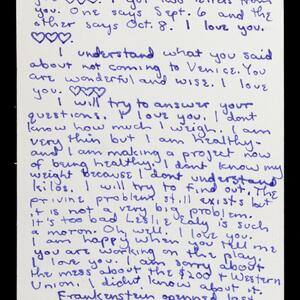 I got two letters from
you. One says Sept. 6 and the
other says Oct. 8. I love you.
♡♡♡.
I understand what you said
about not coming to Venice. You
are wonderful and wise. I love
you. ♡♡♡
I will try to answer your
questions. I love you. I dont
know how much I weigh. I am
very thin but I am healthy-
and I am making a project now
of being healthy. I dont know my
weight because I dont understand
kilos. I will try to find out. The
privine problem still exists but
it is not a very big problem.
It's too bad Leslie Edly is such
a moron. Oh, well. I love you.
I am happy when you tell me
you are working on the play.
I love you. I am sorry about
the mess about the $200 + Western
Union. I didn't know about it.
Frankenstein openned last